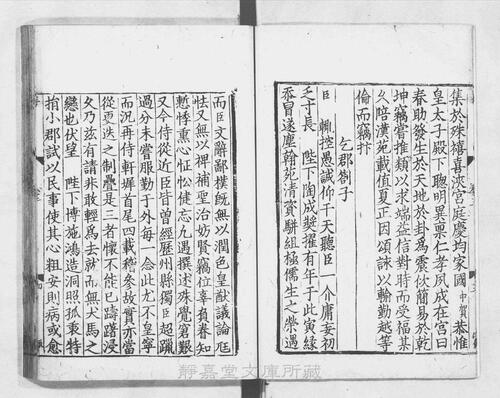 集於殊禧喜浹宮庭慶均家國中賀恭惟
皇太子殿下聰明異稟仁孝夙成在宮曰
春助發生於天地於卦爲震佽簡易於乾
坤竊嘗推類以求端益信對時而受福某
久陪漢苑載值夏正因頌詠以輸勤越等
倫而竊抃
乞郡劄子
臣輒控愚誠仰干天聽臣一介庸妄初
乏寸長陛下陶成奬擢有年于此寅緣
忝冒遂塵翰苑清資駢組極儒生之榮遇
而臣文辭鄙樸旣無以潤色皇猷議論尫
怯又無以裨補聖治妨賢竊位辜負眷知
慙悸熏心怔忪健忘九遇撰述殊覺寬艱
又今侍從近臣皆曾經歷州縣獨臣超躐
過分未嘗服勤于外每一念此尤不皇寧
而況再侍軒墀首尾四載稽參故實亦當
從更迭之制疊是三者懷不能已躊躇浸
久乃玆有請非敢輕爲去就而無犬馬之
戀也伏望陛下博施鴻造洞照孤衷特
捐小郡試以民事使其心粗安則病或愈
靜嘉堂文庫所藏